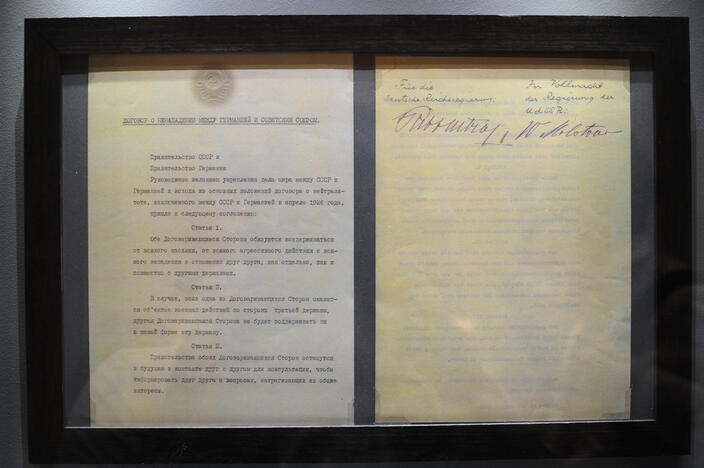 ДОГОВОР О НЕНАПАДЕНИИ МЕЖДУ ГЕРМАНИЕЙ И СОВЕТСКИМ СОЮЗОМ.
Правительство СССР и
Правительство Германии
Руководимые желанием укрепления дела мира между СССР и
Германией и исходя из основных положений договора о нейтрали-
тете, заключенного между СССР и Германией в апреле 1926 года,
пришли к следующему соглашению:
Статья I.
Обе Договаривающиеся Стороны обязуются воздерживаться
от всякого насилия, от всякого агрессивного действия и вся-
кого нападения в отношении друг друга, как отдельно, так и
совместно с другими державами.
Статья II.
В случае, если одна из Договаривающихся Сторон окажет-
ся об'ектом военных действий со стороны третьей державы,
другая Договаривающаяся Сторона не будет поддерживать ни
в какой форме эту державу.
Статья III.
Правительства обоих Договаривающихся Сторон останутся
в будущем в контакте друг с другом для консультации, чтобы
информировать друг друга о вопросах, затрагивающих их общие
интересы.
Für die
Deutsche Reichsregierung:
In Vollmacht
der Regierung der
UdSSR:
Ribbentrop
W. Molotow